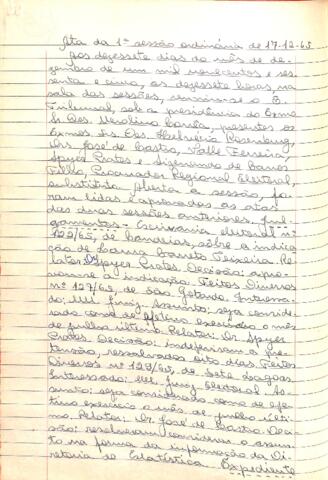 Ata da 1ª sessão ordinária de 17-12-65
Aos dezessete dias do mês de de-
zembro de um mil novecentos e ses-
senta e cinco, às dezessete horas, na
sala das sessões, reuniu-se o E.
Tribunal, sob a presidência do Exmo
Sr. Des. presentes os
Exmos. Srs. Des. Helvécio Rosenburg,
Drs. José de Castro, Valle Ferreira,
Spyer Prates e de Barros
Filho, Procurador Regional Eleitoral,
substituto. Aberta a sessão, fo-
ram lidas e aprovadas as atas
das duas sessões anteriores. Jul-
gamentos - Escrivania eleitoral nº
122/65, de sôbre a indica-
ção de Barreto Teixeira. Re-
lator: Dr. Spyer Prates. Decisão: apro-
varam a indicação. Feitos Diversos
nº 127/65, de São Gotardo. Interessa-
do: MM. Juiz. Assunto: seja conside-
rado como de efetivo exercício o mês
de julho último. Relator: Dr. Spyer
Prates. Decisão: indeferiram a pre-
tensão, ressalvados oito dias. Feitos
Diversos nº 129/65, de Sete Lagoas.
Interessado: MM. Juiz Eleitoral. As-
sunto: seja considerado como de efe-
tivo exercício o mês de julho últi-
mo. Relator: Dr. José de Castro. Deci-
são: resolveram considerar o assun-
to na forma da informação da Di-
retoria de Estatística. Expediente